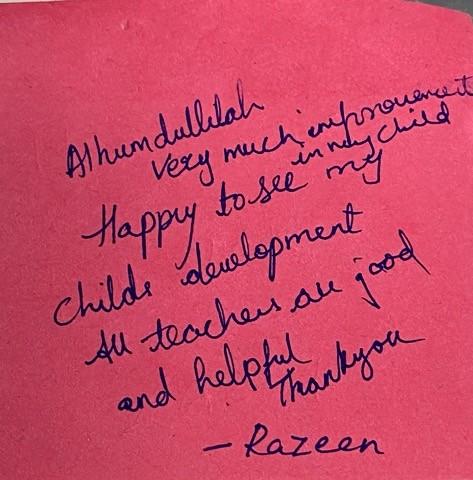 Alhumdullilah
Very much improvement
in my child
Happy to see my
childs development
All teachers are good
and helpful
Thankyou
- Razeen